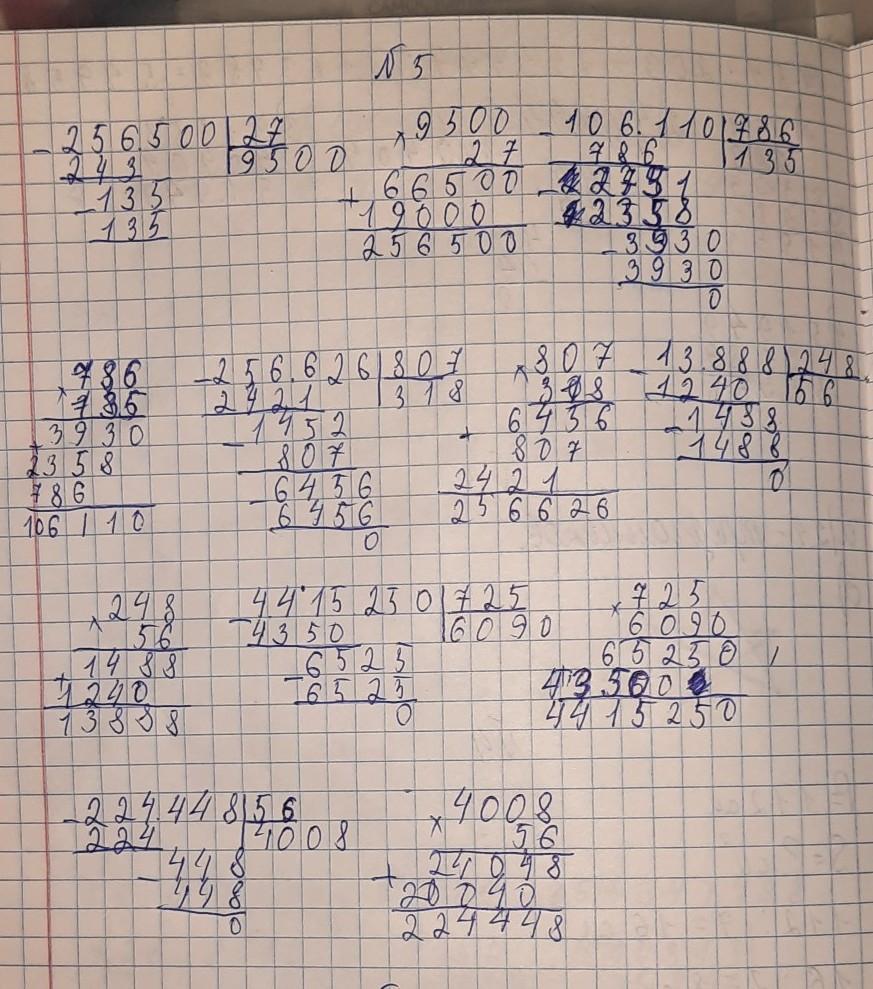 N 5
- 256500 | 27
243 | 9500
- 135
135
× 9500
27
+ 66500
19000
256500
- 106.110 | 786
786 | 135
- 2751
2358
- 3930
3930
0
× 786
135
+ 3930
2358
786
106110
- 256.626 | 807
2421 | 318
- 1452
807
- 6456
6456
0
× 807
318
+ 6456
807
2421
256626
- 13.888 | 248
1240 | 56
- 1488
1488
0
× 248
56
+ 1488
1240
13888
- 4415250 | 725
4350 | 6090
- 6525
6525
0
× 725
6090
65250
43500
4415250
- 224.448 | 56
224 | 4008
- 448
448
0
× 4008
56
+ 24048
20040
224448